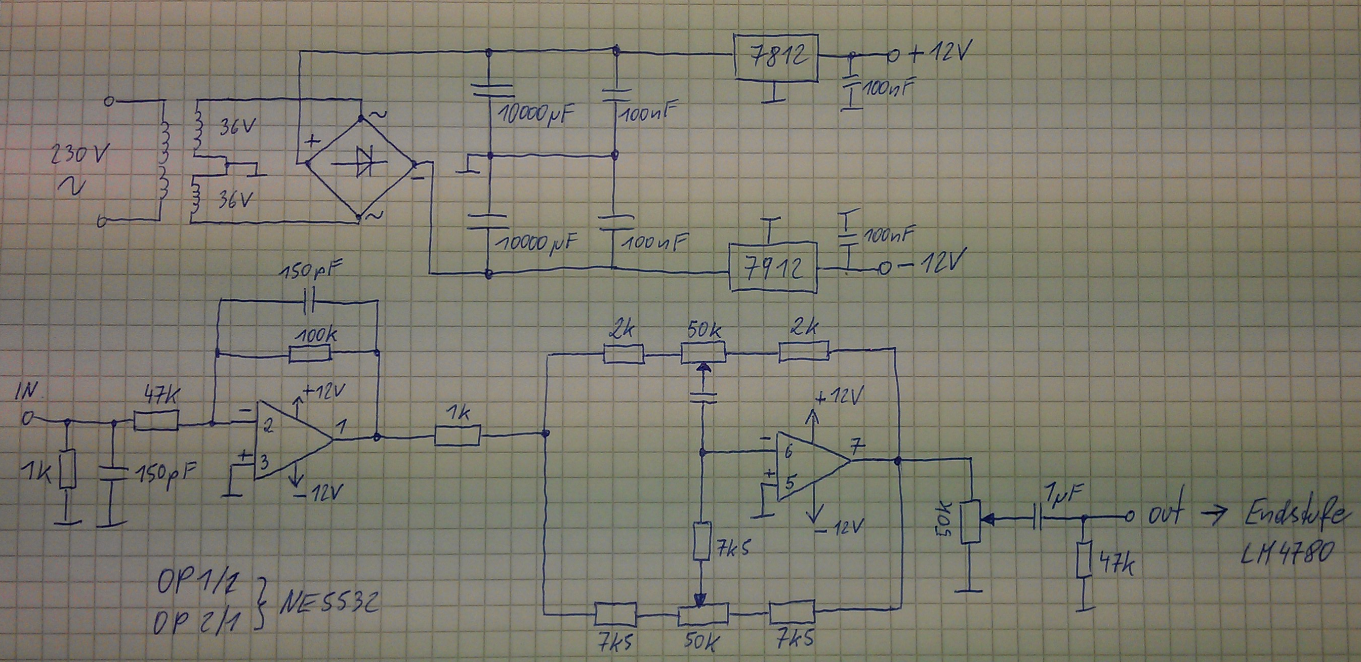 7812
+12V
100nF
10000µF
100nF
230V
~
36V
36V
+
~
-
~
10000µF
100nF
7912
100nF
-12V
150pF
100k
IN
47k
+12V
-
2
1
+
3
-12V
1k
150pF
1k
2k
50k
2k
+12V
-
6
7
+
5
-12V
7k5
7k5
50k
7k5
50k
1µF
47k
out → Endstufe
LM4780
OP1/2
OP2/1
} NE5532